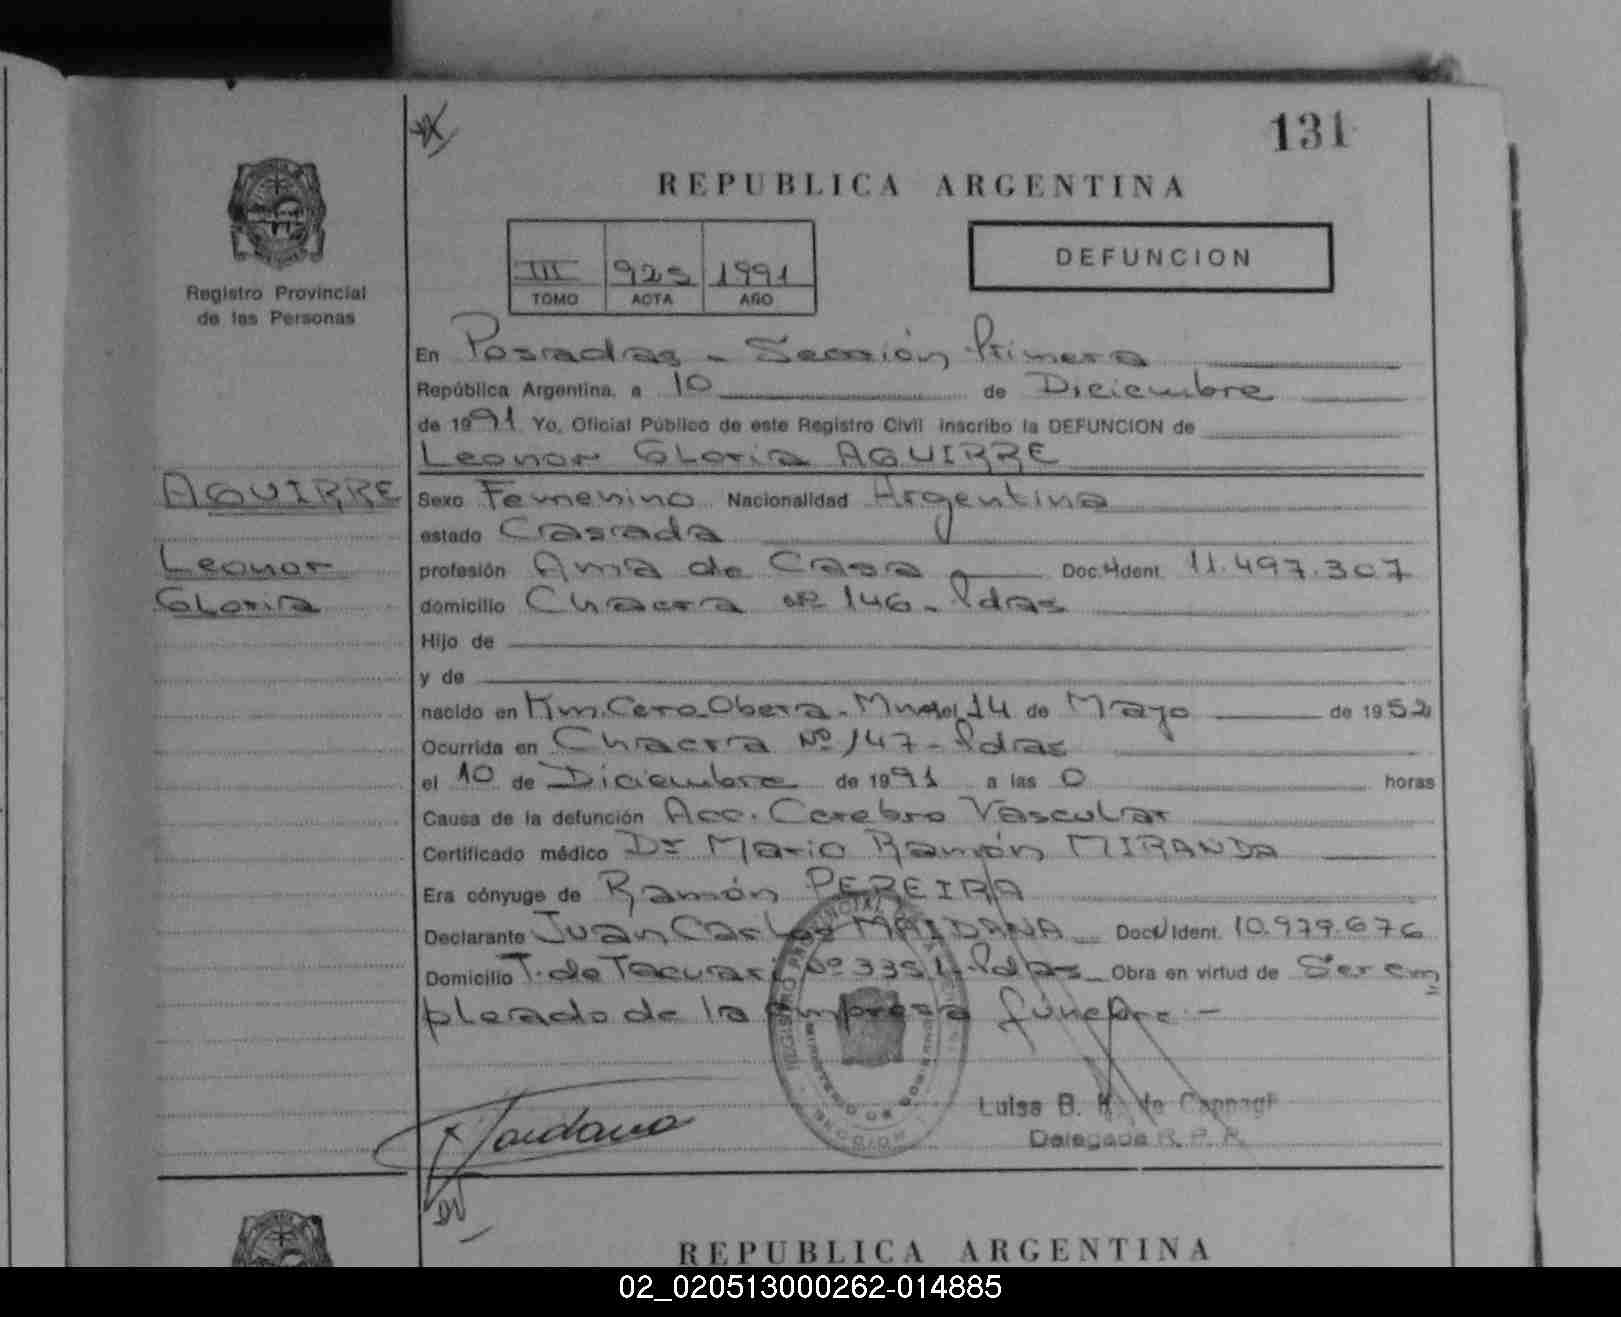 131
REPUBLICA ARGENTINA
Registro Provincial
de las Personas
III 925 1991
TOMO ACTA AÑO
DEFUNCION
En Posadas - Sección Primera
República Argentina, a 10 de Diciembre
de 1991 Yo, Oficial Público de este Registro Civil inscribo la DEFUNCION de
Leonor Gloria AGUIRRE
AGUIRRE
Leonor
Gloria
Sexo Femenino Nacionalidad Argentina
estado Casada
profesión Ama de Casa Doc. Ident. 11.497.307
domicilio Chacra Nº 146 - Pdas
Hijo de
y de
nacido en Km. Cero Obera - 14 de Mayo de 1952
Ocurrida en Chacra Nº 147 - Pdas
el 10 de Diciembre de 1991 a las 0 horas
Causa de la defunción Acc. Cerebro Vascular
Certificado médico Dr Mario Ramón MIRANDA
Era cónyuge de Ramón PEREIRA
Declarante Juan Carlos MAIDANA Doc. Ident. 10.979.676
Domicilio T. de Tacuari Nº 3351 - Pdas Obra en virtud de Ser em
pleado de la empresa fúnebre. -
Maidana
Luisa B. de
Delegada R. P. P.
REPUBLICA ARGENTINA
02_020513000262-014885